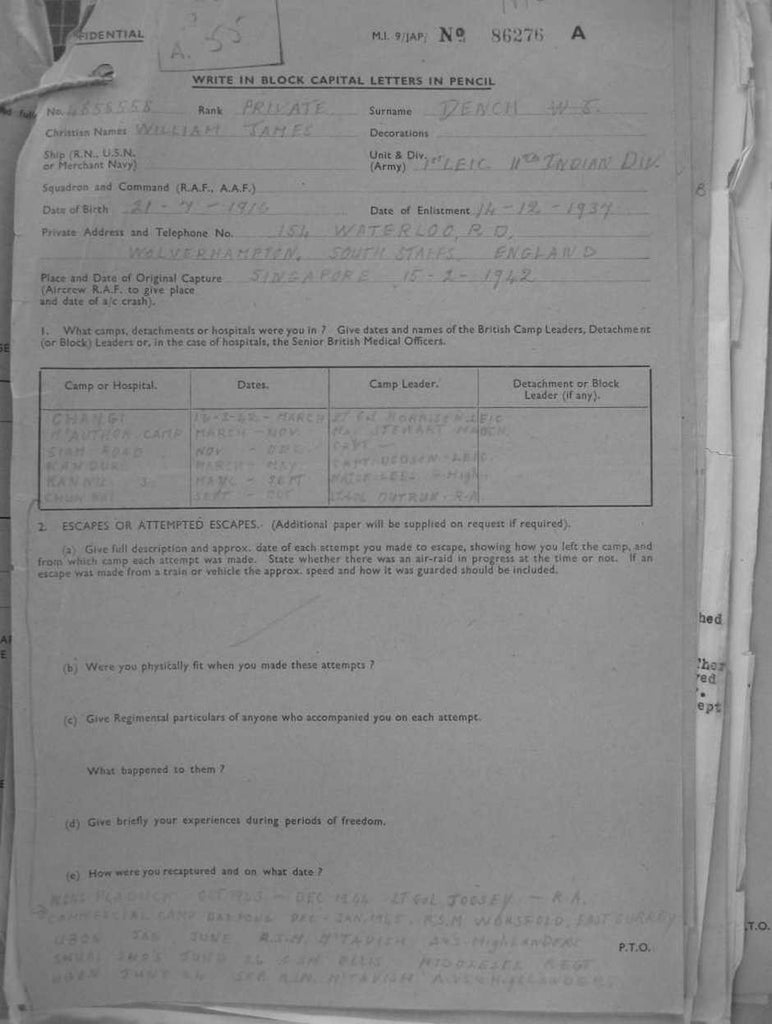 FIDENTIAL
A. 55
M.I. 9/JAP/ No 86276 A
WRITE IN BLOCK CAPITAL LETTERS IN PENCIL
No. 4858558 Rank PRIVATE Surname DENCH W J.
Christian Names WILLIAM JAMES Decorations
Ship (R.N., U.S.N. or Merchant Navy) Unit & Div. (Army) 1st LEIC 11th INDIAN DIV.
Squadron and Command (R.A.F., A.A.F.)
Date of Birth 21 - 7 - 1916 Date of Enlistment 14-12-1937
Private Address and Telephone No. 154 WATERLOO, RD,
WOLVERHAMPTON, SOUTH STAFFS, ENGLAND
Place and Date of Original Capture SINGAPORE 15-2-1942
(Aircrew R.A.F. to give place
and date of a/c crash).
1. What camps, detachments or hospitals were you in ? Give dates and names of the British Camp Leaders, Detachment
(or Block) Leaders or, in the case of hospitals, the Senior British Medical Officers.
Camp or Hospital. Dates. Camp Leader. Detachment or Block Leader (if any).
CHANGI MARCH LT COL MORRISON LEIC
M'AUTHOR CAMP MARCH - NOV. MAJ STEWART
SIAM ROAD NOV - DEC CAPT
MARCH - MAY CAPT. DODSON - LEIC.
SEPT
SEPT - OCT LT COL OUTRUM - R.A
2. ESCAPES OR ATTEMPTED ESCAPES. (Additional paper will be supplied on request if required).
(a) Give full description and approx. date of each attempt you made to escape, showing how you left the camp, and
from which camp each attempt was made. State whether there was an air-raid in progress at the time or not. If an
escape was made from a train or vehicle the approx. speed and how it was guarded should be included.
(b) Were you physically fit when you made these attempts ?
(c) Give Regimental particulars of anyone who accompanied you on each attempt.
What happened to them ?
(d) Give briefly your experiences during periods of freedom.
(e) How were you recaptured and on what date ?
NONG PLADUCK OCT 1943 - DEC 1944 LT COL TOOSEY - R.A.
COMMERCIAL CAMP DEC - JAN. 1945 R.S.M WORSFOLD, EAST SURREY
UBON JAN JUNE R.S.M. M'TAVISH A & S HIGHLANDERS
JUNE 24 ELLIS MIDDLESEX REGT
UBON JUNE 24 R.S.M. M'TAVISH
P.T.O.
hed
ther
red
ept
T.O.